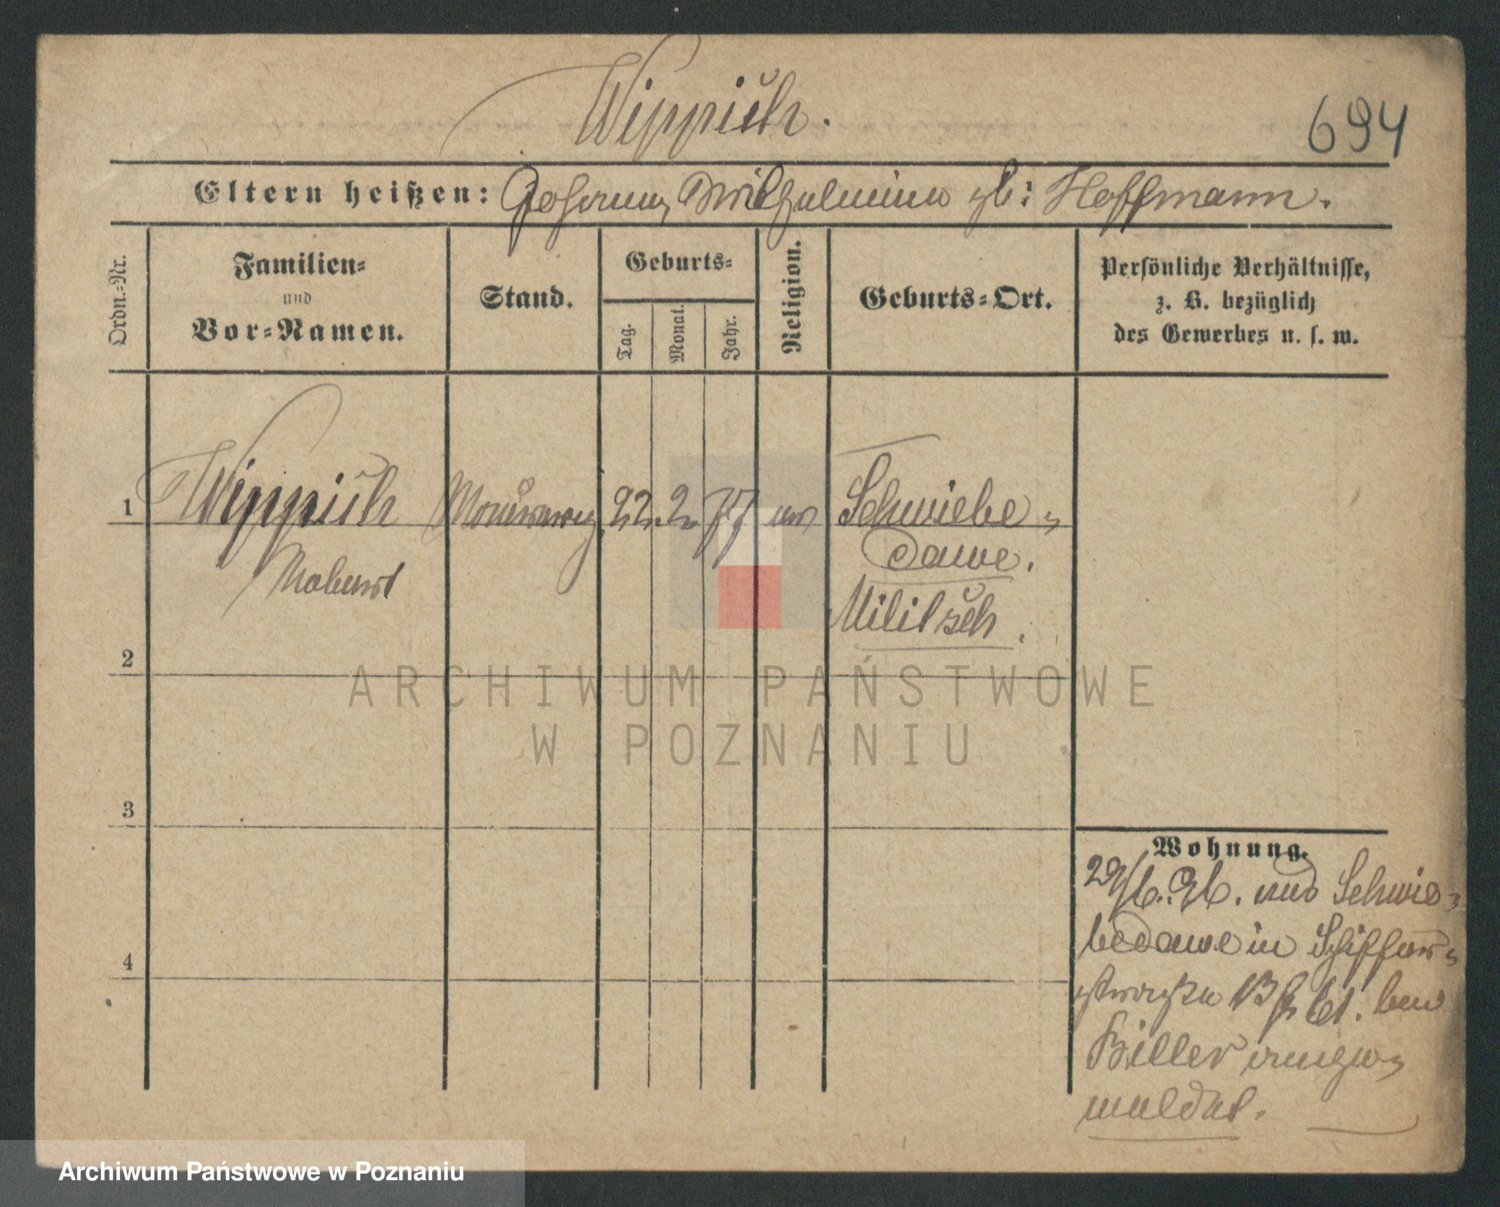 Wippich.
694
Eltern heißen: Johann, Wilhelmine gb: Hoffmann.
Ordn.-Nr.
Familien-
und
Vor-Namen.
Stand.
Geburts-
Tag.
Monat.
Jahr.
Religion.
Geburts-Ort.
Persönliche Verhältnisse,
z. B. bezüglich
des Gewerbes u. s. w.
1
Wippich
22. 2. 77
ev
Schwiebe-
dawe.
Robert
Militsch.
2
ARCHIWUM PAŃSTWOWE
W POZNANIU
3
Wohnung.
29/6. 96. aus Schwie-
bedawe in
4
13 bei
Hiller ange-
meldet.
Archiwum Państwowe w Poznaniu